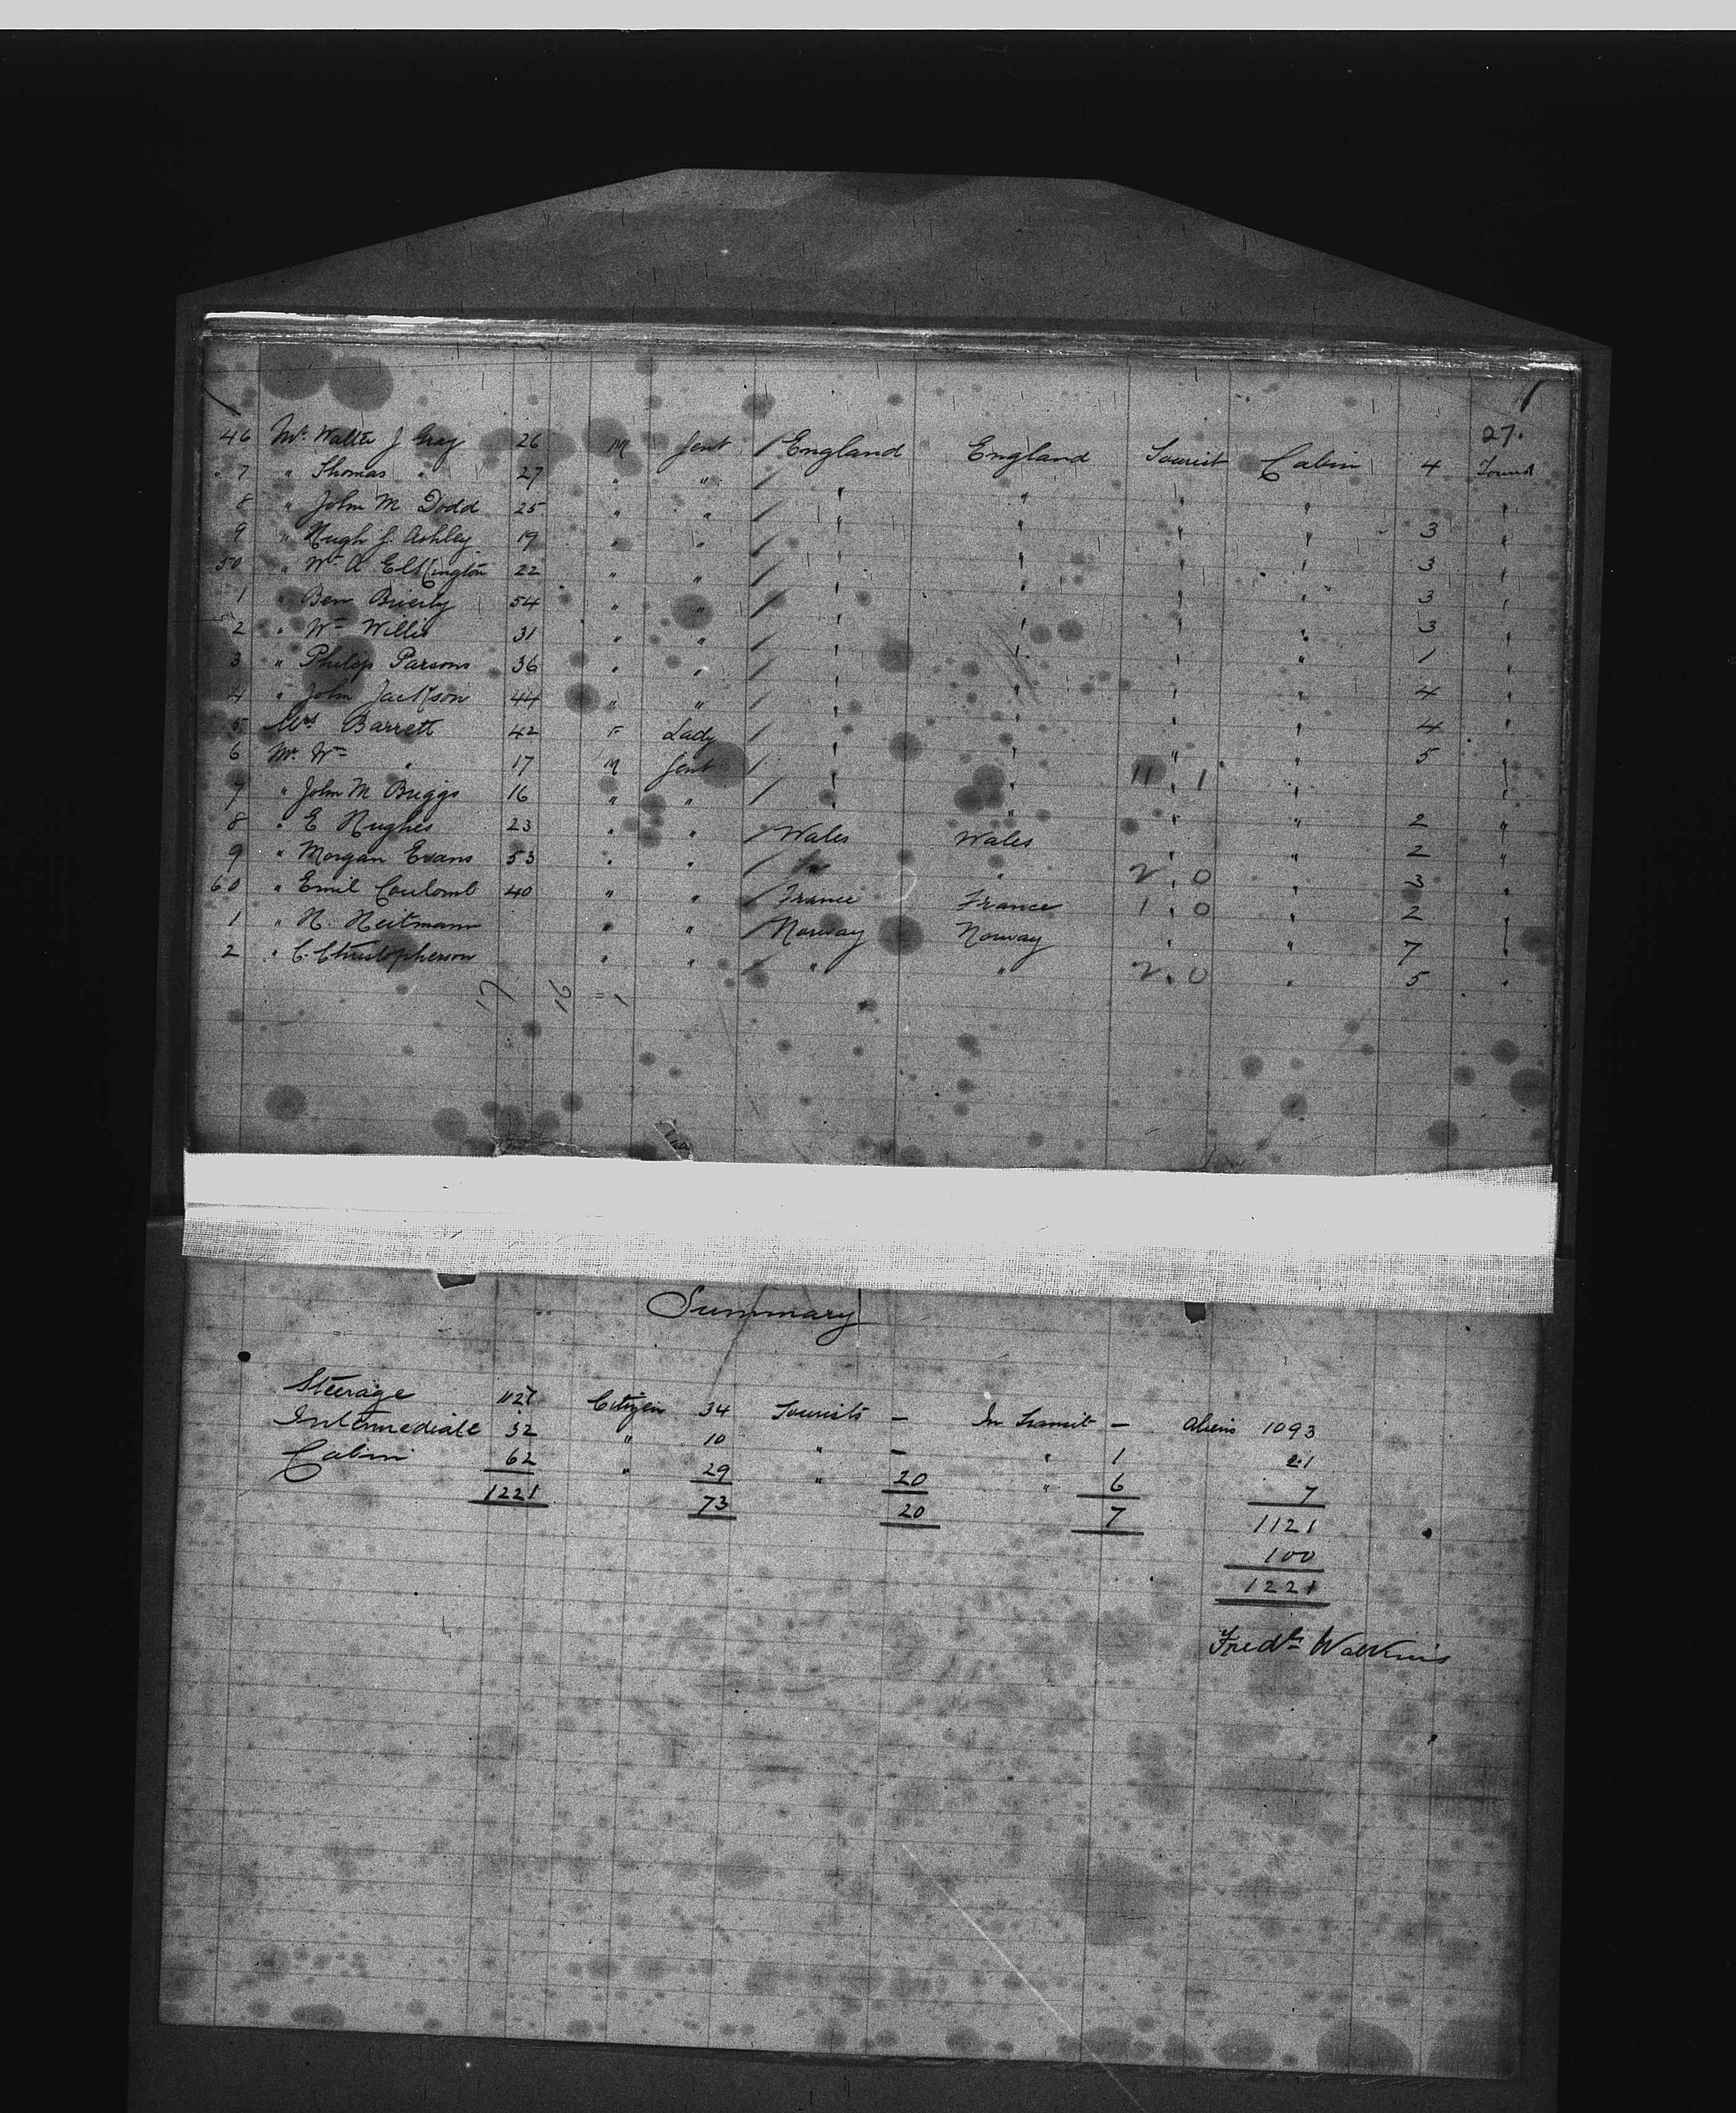 27.
46 Mr. Walter J Gray 26 M Gent / England England Tourist Cabin 4 Tourist
7 " Thomas " 27 " " / " " " " "
8 " John M Dodd 25 " " / " " " " 3 "
9 " Hugh J. Ashley 19 " " / " " " " 3 "
50 " Wm A Elkington 22 " " / " " " " 3 "
1 " Ben Brierly 54 " " / " " " " 3 "
2 " Wm Willis 31 " " / " " " " 1 "
3 " Philip Parsons 36 " " / " " " " 4 "
4 " John Jackson 44 " " / " " " " 4 "
5 Mrs Barrett 42 F Lady / " " " " 5
6 Mr. Wm " 17 M Gent / " " 11 " 1 " "
7 " John M Briggs 16 " " / " " " " 2 "
8 " E Hughes 23 " " / Wales Wales " " 2 "
9 " Morgan Evans 53 " " / " " 2 " 0 " 3 "
60 " Emil Coulomb 40 " " / France France 1 " 0 " 2 "
1 " H. Heitmann " " / Norway Norway " " 7 "
2 " C. Christopherson " " / " " 2 " 0 " 5 "
17 16 = 1
Summary
Steerage 1127 Citizen 34 Tourists — In Transit — Aliens 1093
Intermediate 32 " 10 " — " 1 21
Cabin 62 " 29 " 20 " 6 7
1221 73 20 7 1121
100
1221
Fredk Watkins